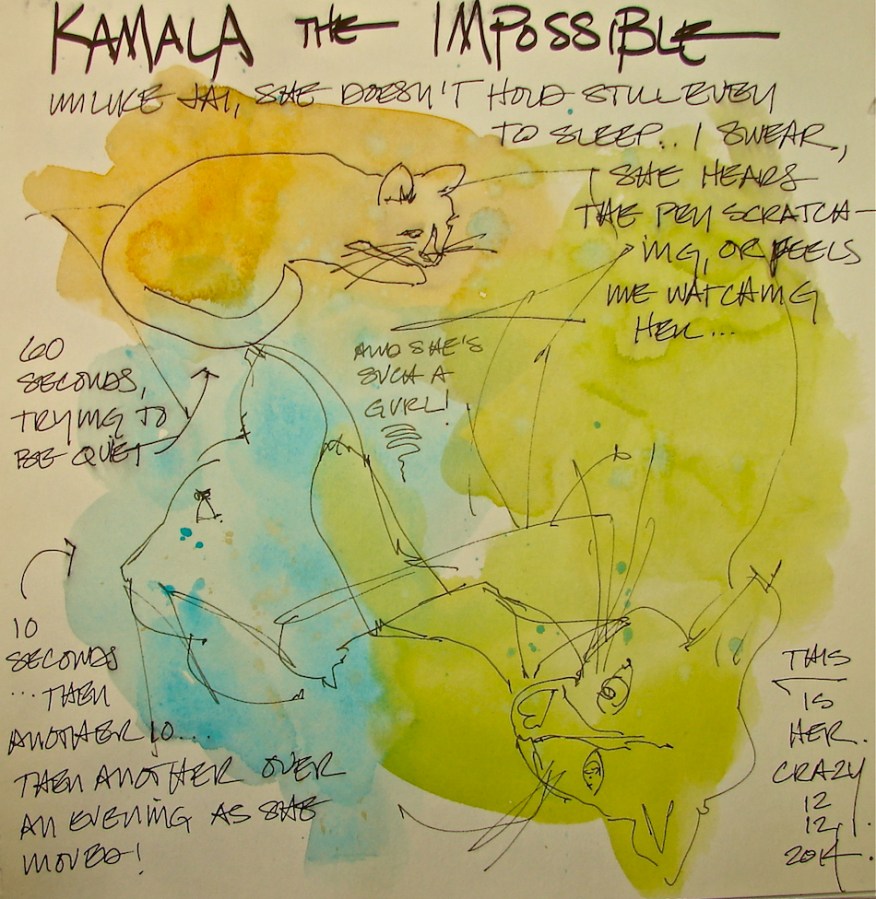 KAMALA THE IMPOSSIBLE
UNLIKE JAI, SHE DOESN'T HOLD STILL EVEN
TO SLEEP.. I SWEAR,
SHE HEARS
THE PEN SCRATCH-
ING, OR FEELS
ME WATCHING
HER...
60
SECONDS,
TRYING TO
BE QUIET
AND SHE'S
SUCH A
GURL!
10
SECONDS
...THEN
ANOTHER 10....
THEN ANOTHER OVER
AN EVENING AS SHE
MOVED!
THIS
IS
HER.
CRAZY
12
12,
2014.